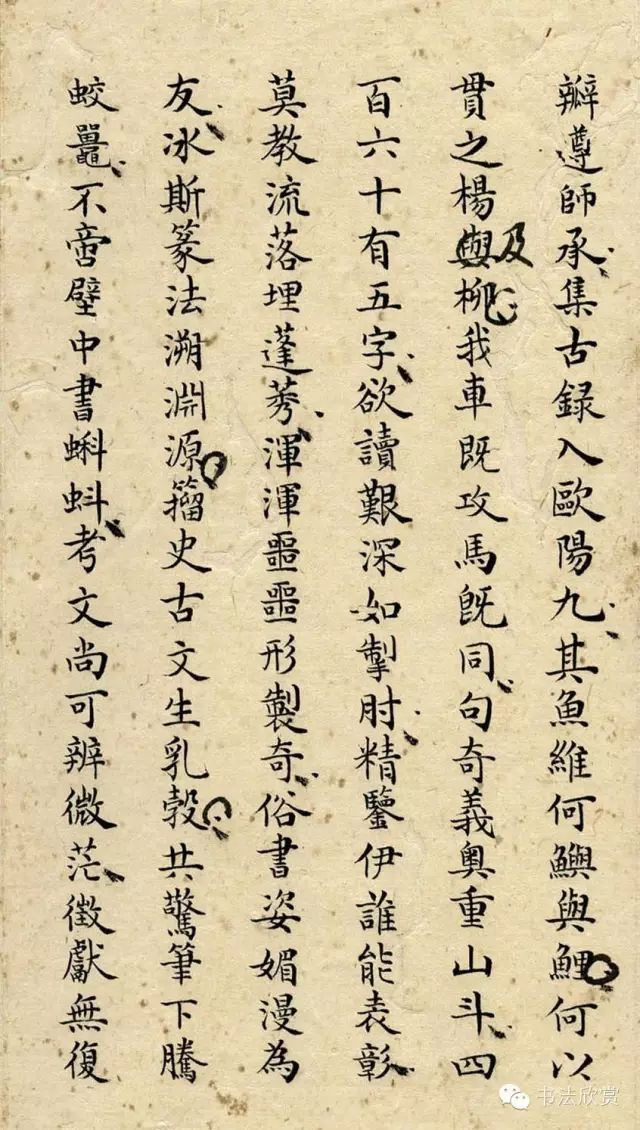 辧遵師承集古録入歐陽九其魚維何鱮與鯉何以
貫之楊與柳我車既攻馬既同句奇義奧重山斗四
及
百六十有五字欲讀艱深如掣肘精鑒伊誰能表彰
莫教流落埋蓬莠渾渾噩噩形製奇俗書姿媚漫為
友冰斯篆法溯淵源籀史古文生乳穀共驚筆下騰
蛟鼉不啻壁中書蝌蚪考文尚可辨微茫徵獻無復
书法欣赏